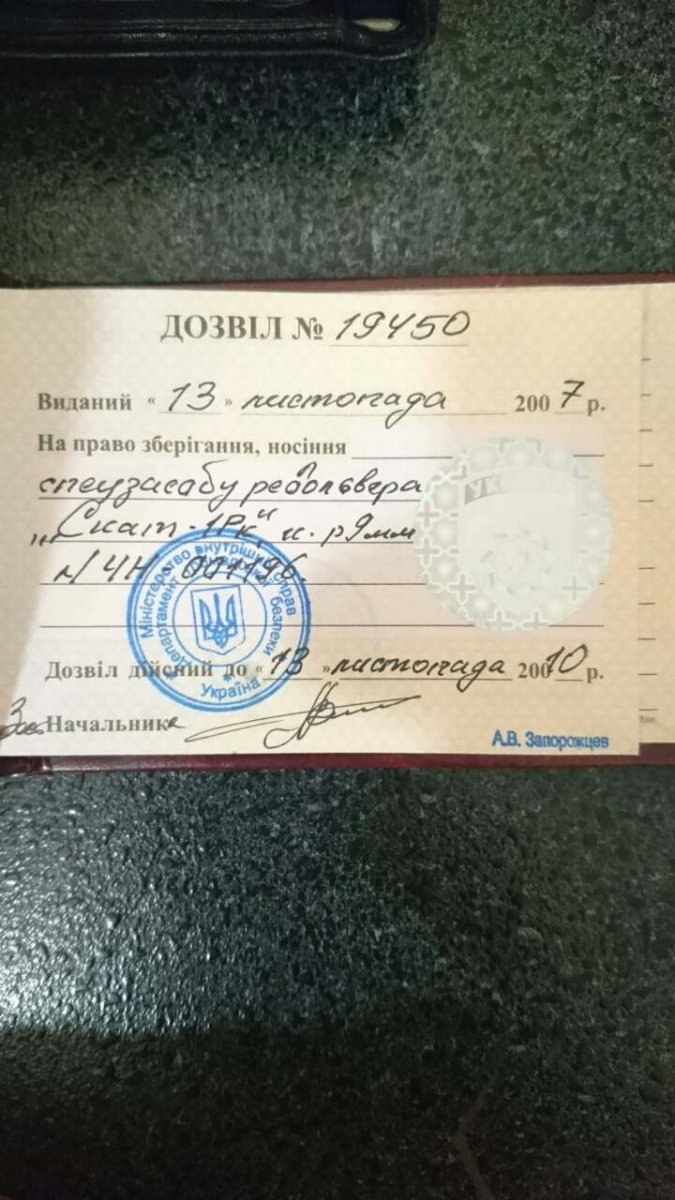 ДОЗВІЛ № 19450
Виданий « 13 » листопада 2007 р.
На право зберігання, носіння
спецзасобу револьвера
„Скат-1Рк", к. р9мм
н/ ЧН
Міністерство внутрішніх справ
Департамент безпеки
Україна
Дозвіл дійсний до « 13 » листопада 20010 р.
Начальник
А.В. Запорожцев
УК